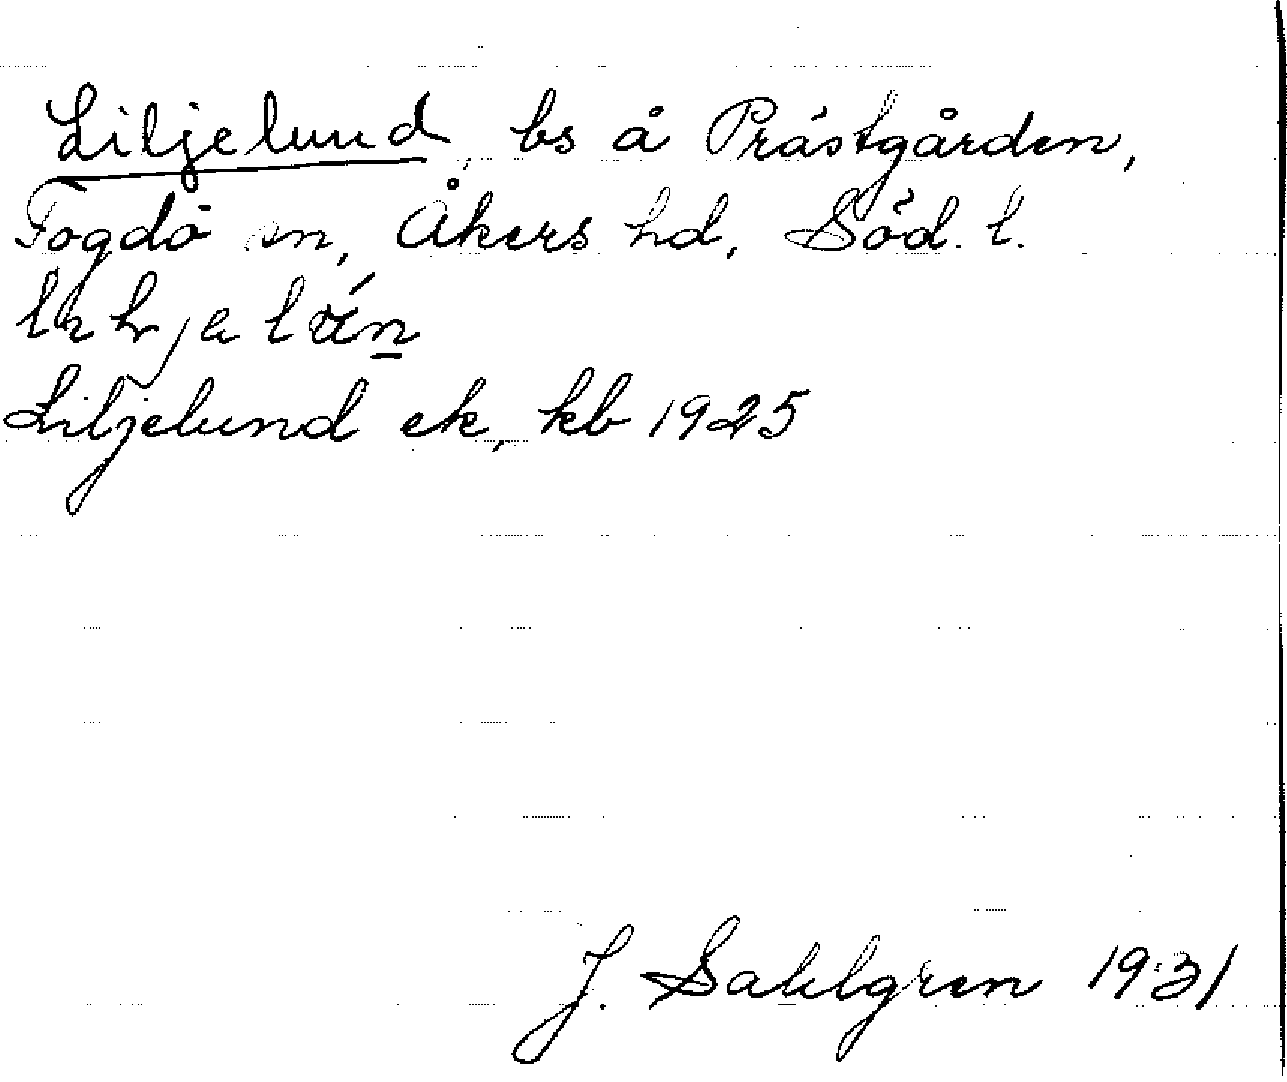 Liljelund, bs å Prästgården,
Fogdö sn, Åkers hd, Söd. l.
Liljelund ek, kb 1925
J. Sahlgren 1931